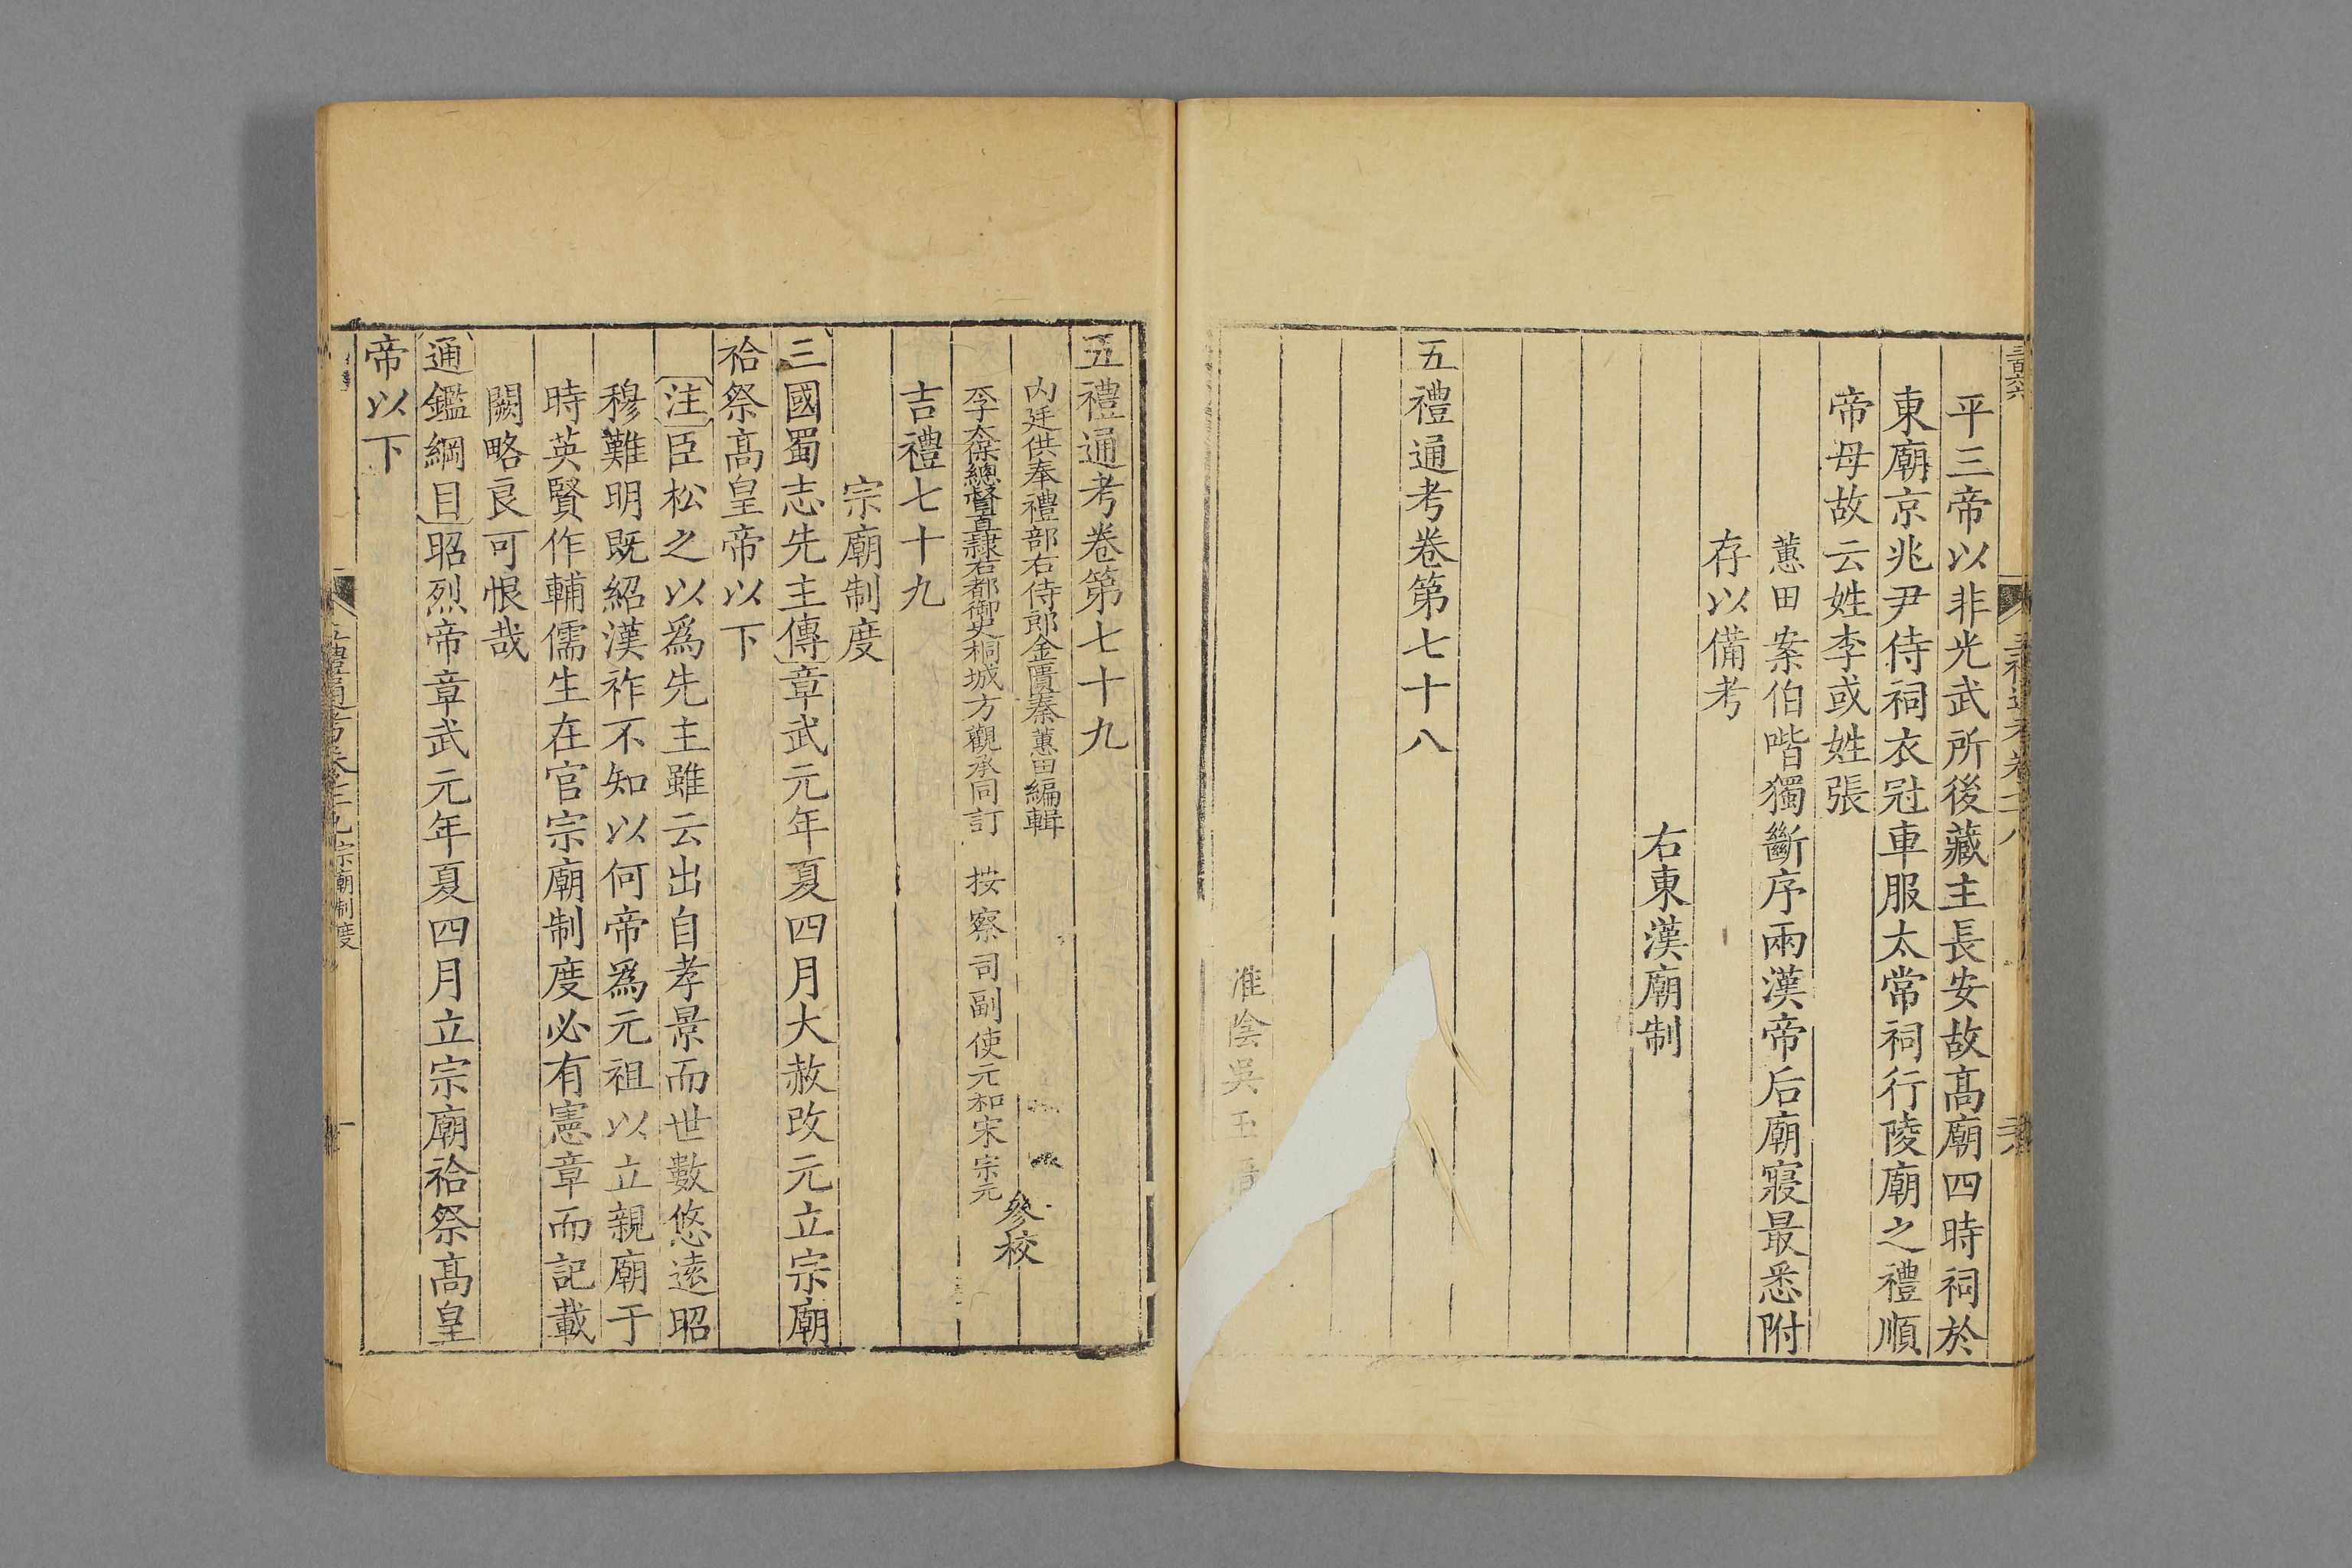 平三帝以非光武所後藏主長安故高廟四時祠於
東廟京兆尹侍祠衣冠車服太常祠行陵廟之禮順
帝母故云姓李或姓張
蕙田案伯喈獨斷序兩漢帝后廟寢最悉附
存以備考
右東漢廟制
五禮通考卷第七十八
淮陰吳玉
五禮通考卷第七十九
内廷供奉禮部右侍郎金匱秦蕙田編輯
太保總督直隷右都御史桐城方觀承同訂 按察司副使元和宋宗元
參校
吉禮七十九
宗廟制度
三國蜀志先主傳章武元年夏四月大赦改元立宗廟
祫祭高皇帝以下
注臣松之以爲先主雖云出自孝景而世數悠遠昭
穆難明既紹漢祚不知以何帝爲元祖以立親廟于
時英賢作輔儒生在官宗廟制度必有憲章而記載
闕略良可恨哉
通鑑綱目昭烈帝章武元年夏四月立宗廟祫祭高皇
帝以下
宗廟制度